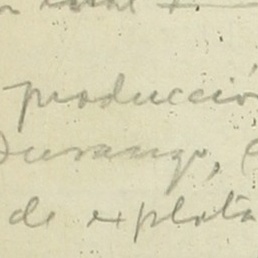 producción
Durango,
de explota